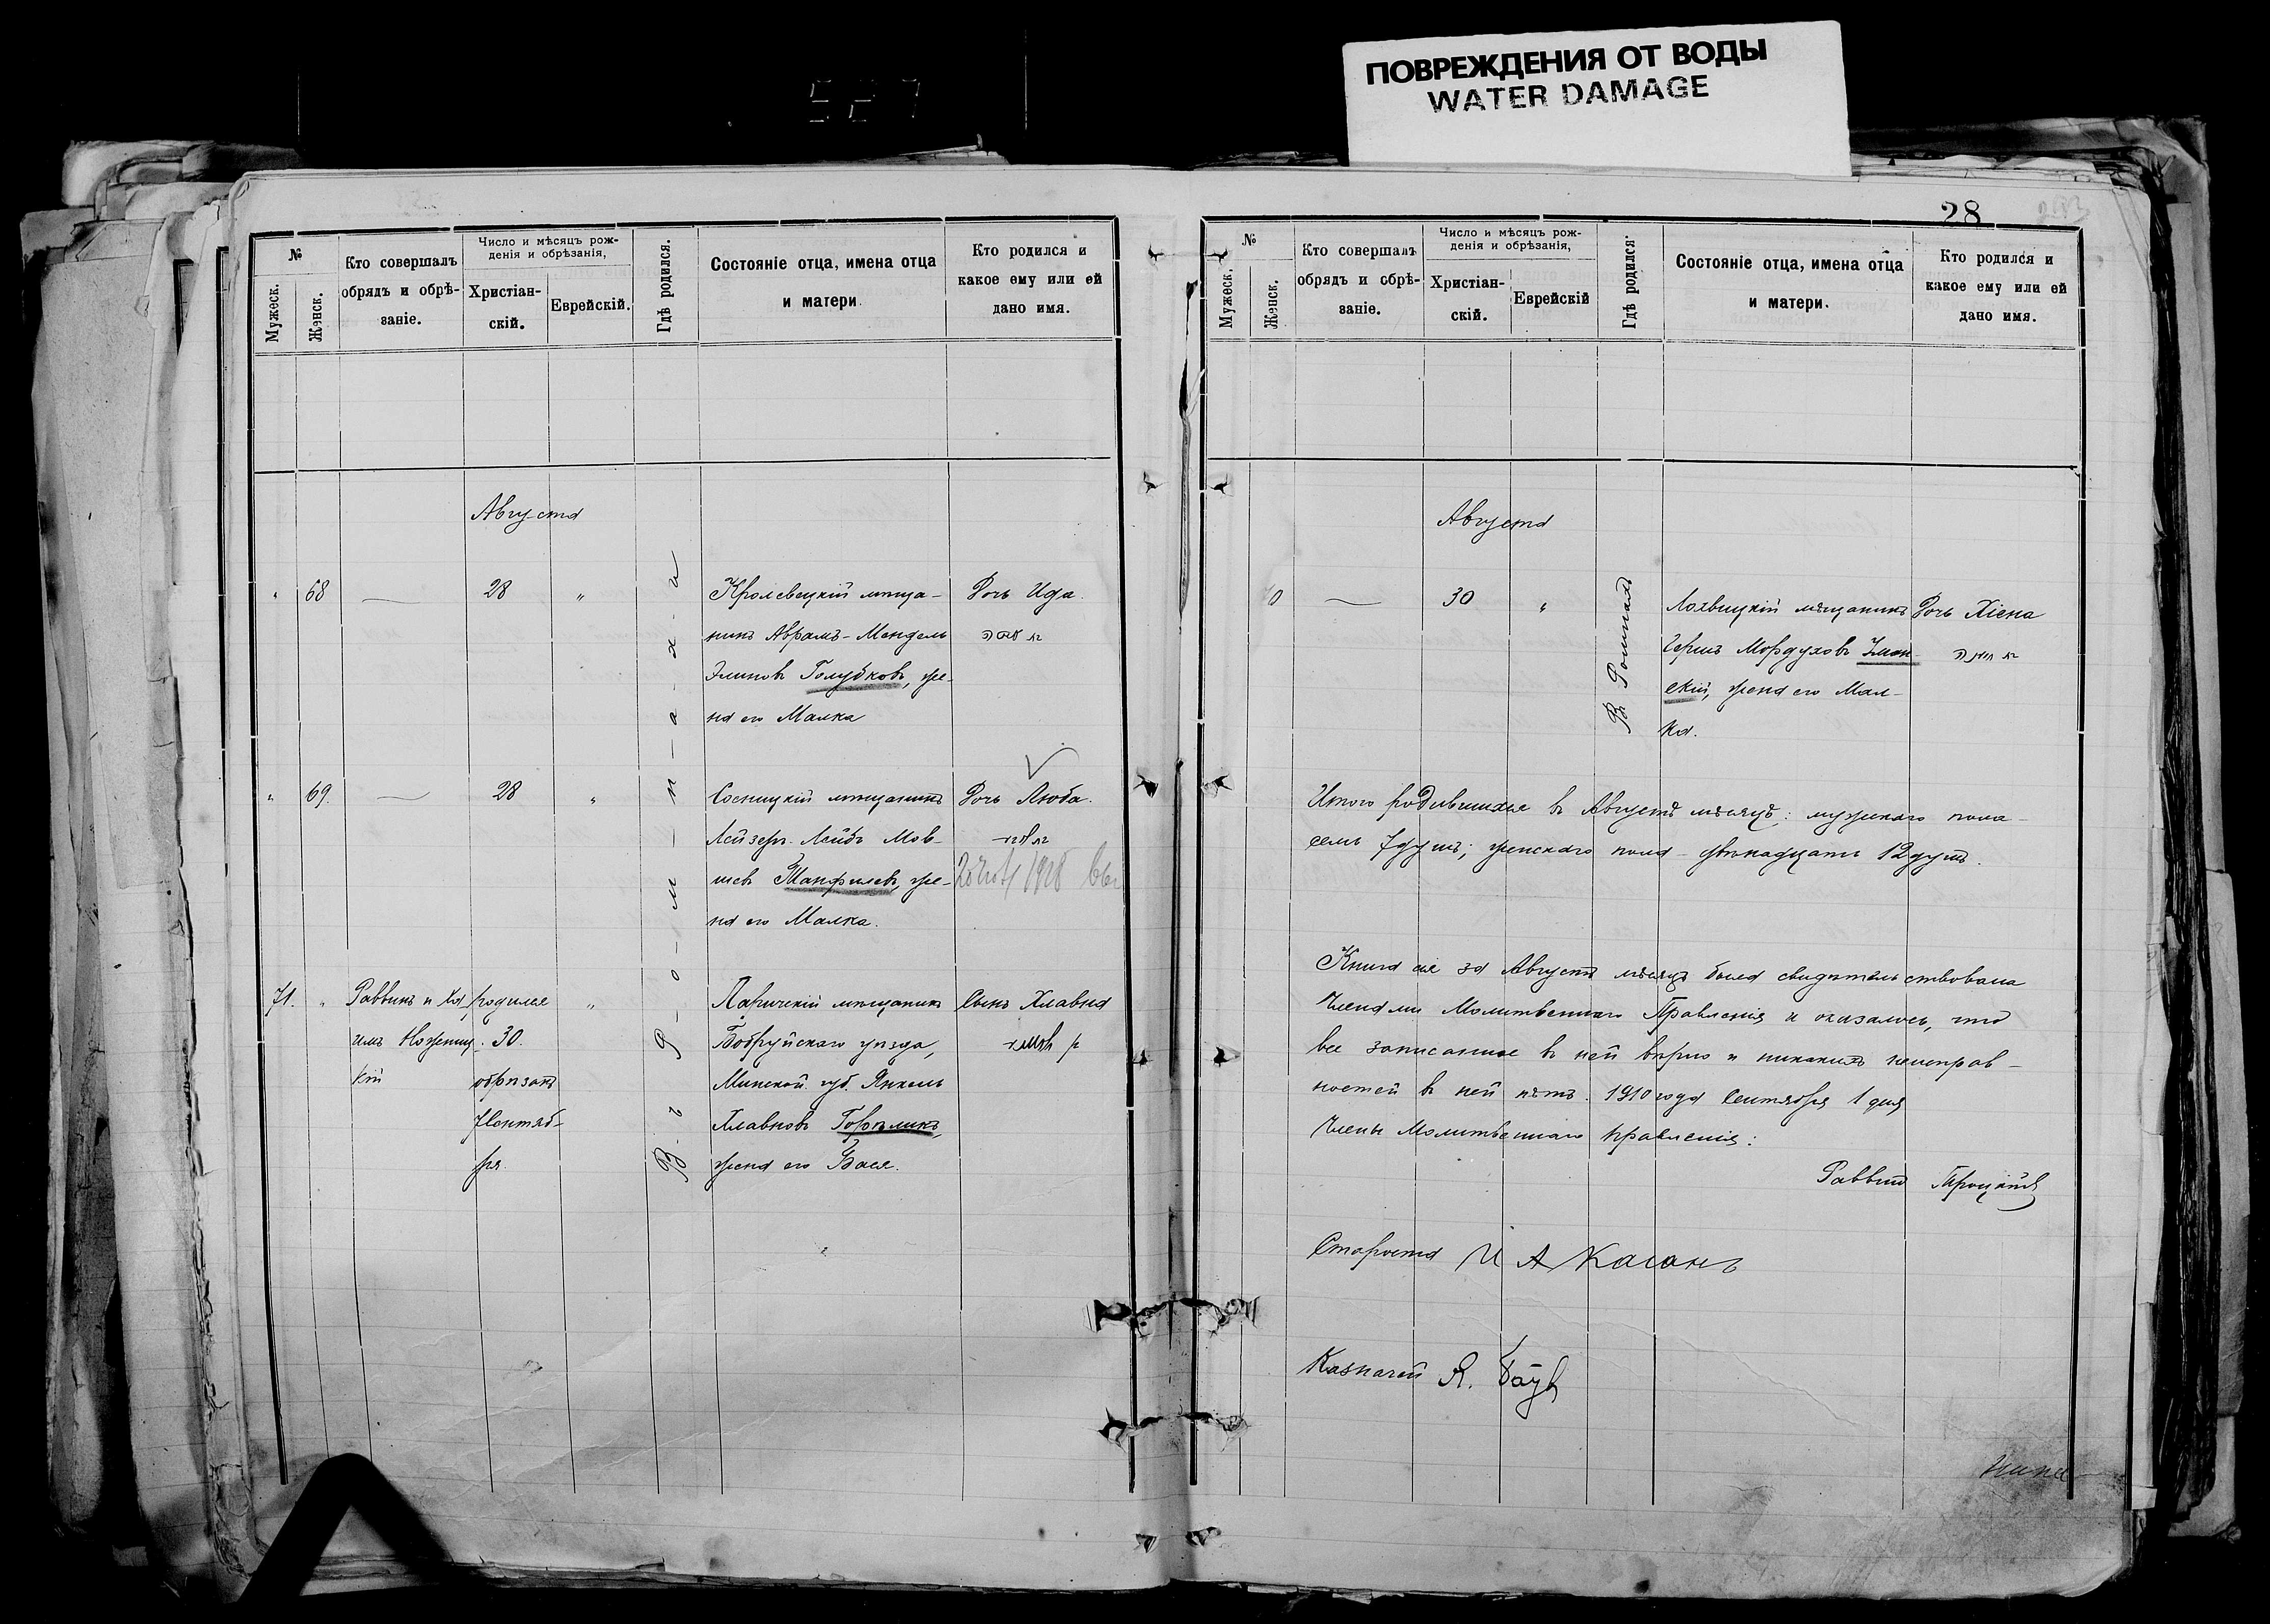 ПОВРЕЖДЕНИЯ ОТ ВОДЫ
WATER DAMAGE
527
№
Мужеск.
Женск.
Кто совершалъ
обрядъ и обрѣ-
заніе.
Число и мѣсяцъ рож-
денія и обрѣзанія,
Христіан-
скій.
Еврейскій.
Гдѣ родился.
Состояніе отца, имена отца
и матери.
Кто родился и
какое ему или ей
дано имя.
Августа
В-ъ Р-о-м-н-а-х-ъ
68
28
"
Кролевецкій мѣща-
нинъ Абрамъ-Мендель
Элиновъ Голубковъ, же-
на его Малка
Дочь Ида.
"
69.
28
"
Сосницкій мѣщанинъ
Лейзеръ-Лейбъ Мов-
шевъ, же-
на его Малка.
Дочь Люба.
1928
71.
"
Раввинъ и Ха
имъ
кій
родился
30.
обрѣзанъ
7 Сентяб-
ря.
"
Паричскій мѣщанинъ
Бобруйскаго уѣзда,
Минской губ. Янкель
Хлавновъ Гореликъ,
жена его Бася.
Сынъ Хлавна
28
№
Мужеск.
Женск.
Кто совершалъ
обрядъ и обрѣ-
заніе.
Число и мѣсяцъ рож-
денія и обрѣзанія,
Христіан-
скій.
Еврейскій
Гдѣ родился.
Состояніе отца, имена отца
и матери.
Кто родился и
какое ему или ей
дано имя.
Августа
Въ Ромнахъ
30
"
Лохвицкій мѣщанинъ
Гершъ Мордуховъ
скій, жена его Мал-
ка.
Дочь Хіена
Итого родившихся въ Августѣ мѣсяцѣ: мужского пола
семь 7 душъ; женскаго пола – двѣнадцать 12 душъ.
Книга сія за Августъ мѣсяцъ была свидѣтельствована
Членами Молитвеннаго Правленія и оказалось, что
все записанное въ ней вѣрно и никакихъ неисправ-
ностей въ ней нѣтъ. 1910 года Сентября 1 дня
Члены Молитвеннаго правленія:
Раввинъ Троцкій
Староста И А Каганъ
Казначей Я.